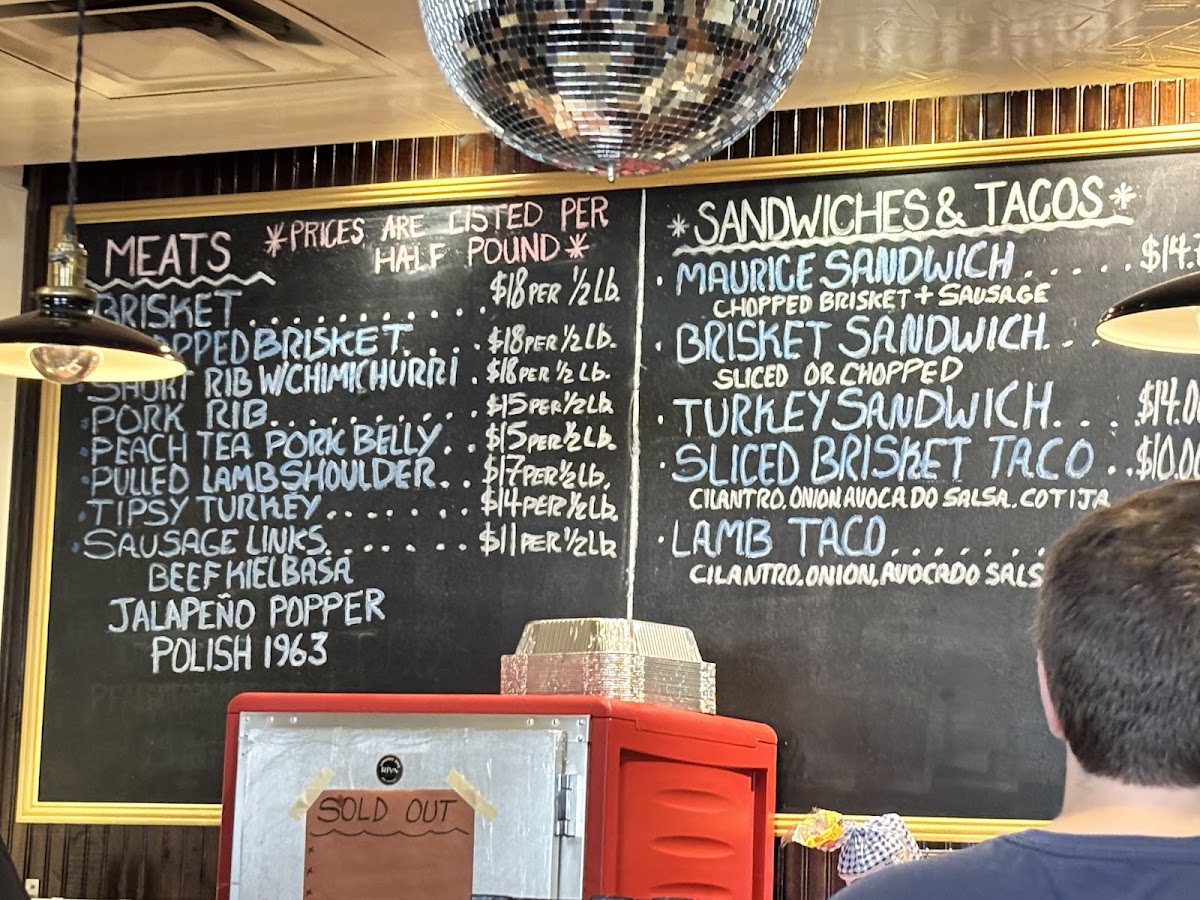 MEATS
*PRICES ARE LISTED PER
HALF POUND*
BRISKET .......... $18 PER 1/2 LB.
CHOPPED BRISKET.... $18 PER 1/2 LB.
SHORT RIB W/CHIMICHURRI . $18 PER 1/2 LB.
PORK RIB......... $15 PER 1/2 LB
PEACH TEA PORK BELLY.. $15 PER 1/2 LB.
PULLED LAMB SHOULDER.. $17 PER 1/2 LB.
TIPSY TURKEY....... $14 PER 1/2 LB.
SAUSAGE LINKS....... $11 PER 1/2 LB
BEEF KIELBASA
JALAPEÑO POPPER
POLISH 1963
*SANDWICHES & TACOS*
MAURICE SANDWICH ..... $14.
CHOPPED BRISKET + SAUSAGE
BRISKET SANDWICH...
SLICED OR CHOPPED
TURKEY SANDWICH... $14.0
SLICED BRISKET TACO .. $10.00
CILANTRO, ONION, AVOCADO SALSA, COTIJA
LAMB TACO........
CILANTRO, ONION, AVOCADO SALS
SOLD OUT